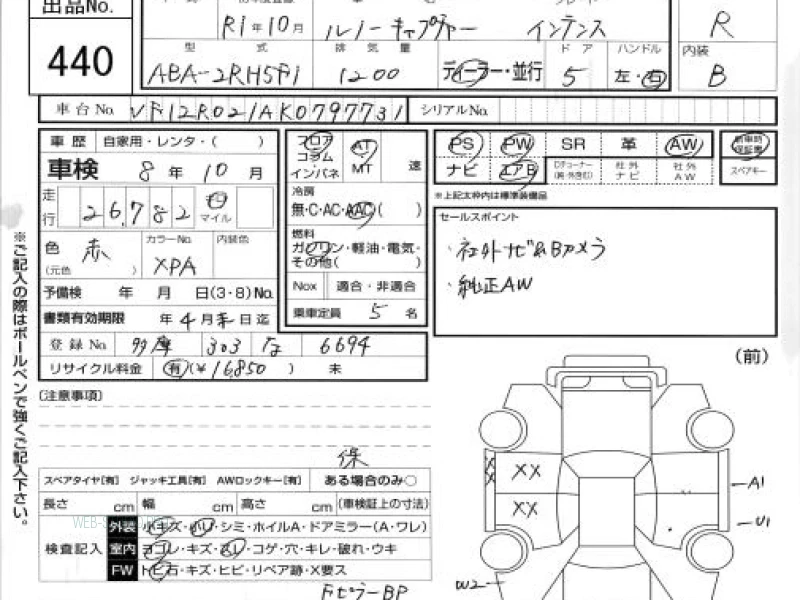 出品No.
440
R1年10月
ルノーキャプチャー
インテンス
R
型 式
排 気 量
ド ア
ハンドル
内装
ABA-2RH5F1
1200
ディーラー・並行
5
左・右
B
車台No. VF12R021AK0797731 シリアルNo.
車 歴 自家用・レンタ・( )
車検 8年10月
走行 26,782 マイル
色 赤 (元色 )
カラーNo. XPA
内装色
予備検 年 月 日(3・8)No.
書類有効期限 年4月末日迄
登録No. 多摩 303 6694
リサイクル料金 有(¥16,850 ) 未
フロア
コラム
インパネ
AT
MT
速
冷房
無・C・AC・AAC( )
燃料
ガソリン・軽油・電気・
その他( )
Nox 適合・非適合
乗車定員 5 名
PS PW SR 革 AW
ナビ エアB Dチューナー 社外ナビ 社外AW
新車時保証書
スペアキー
※上記太枠内は標準装備品
セールスポイント
・社外ナビ&Bカメラ
・純正AW
※ご記入の際はボールペンで強くご記入下さい。
(注意事項)
(前)
保
スペアタイヤ[有] ジャッキ工具[有] AWロックキー[有] ある場合のみ○
長さ cm 幅 cm 高さ cm (車検証上の寸法)
検査記入
外装 小キズ・小U・シミ・ホイルA・ドアミラー(A・ワレ)
室内 ヨゴレ・キズ・スレ・コゲ・穴・キレ・破れ・ウキ
FW トビ石・キズ・ヒビ・リペア跡・X要ス
FピラーBP
XX
XX
XX
A1
U1
W2